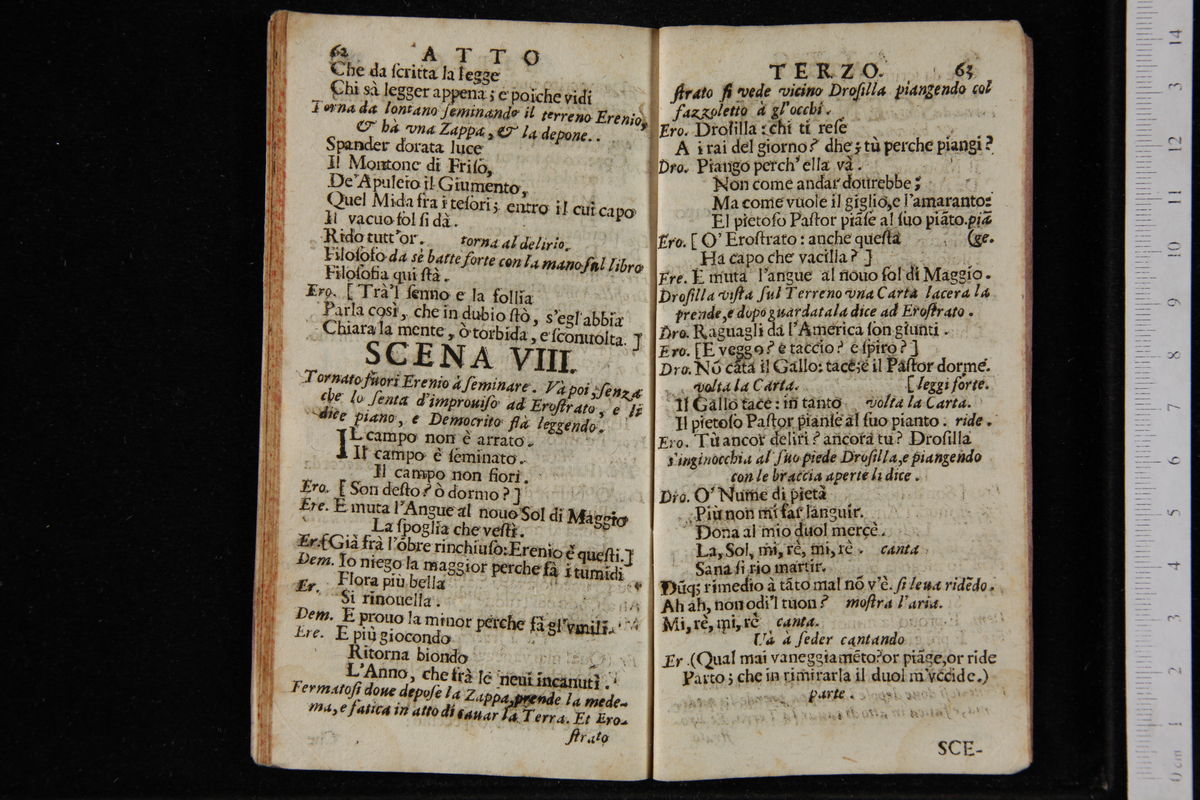 62 ATTO
Che da ſcritta la legge
Chi sà legger appena; e poiche vidi
Torna da lontano ſeminando il terreno Erenio,
& hà vna Zappa, & la depone..
Spander dorata luce
Il Montone di Friſo,
De'Apuleio il Giumento,
Quel Mida frà i teſori; entro il cui capo
Il vacuo ſol ſi dà.
Rido tutt'or. torna al delirio.
Filoſofo da sè batte forte con la mano ſul libro
Filoſofia qui ſtà.
Ero. [ Trà'l ſenno e la follia
Parla così, che in dubio ſtò, s'egl'abbia
Chiara la mente, ò torbida, e ſconuolta. ]
SCENA VIII.
Tornato fuori Erenio à ſeminare. Và poi, ſenza
che lo ſenta d'improuiſo ad Eroſtrato, e li
dice piano, e Democrito ſtà leggendo.
IL campo non è arrato.
Il campo è ſeminato.
Il campo non fiorì.
Ero. [ Son deſto? ò dormo? ]
Ere. E muta l'Angue al nouo Sol di Maggio
La ſpoglia che veſtì.
Er. [Già frà l'õbre rinchiuſo: Erenio è queſti.]
Dem. Io niego la maggior perche fà i tumidi
Er. Flora più bella
Si rinouella.
Dem. E prouo la minor perche fà gl'vmili.
Ere. E più giocondo
Ritorna biondo
L'Anno, che frà le neui incanutì.
Fermatoſi doue depoſe la Zappa, prende la mede-
ma, e fatica in atto di cauar la Terra. Et Ero-
ſtrato
TERZO. 63
ſtrato ſi vede vicino Droſilla piangendo col
fazzoletto à gl'occhi.
Ero. Droſilla: chi ti reſe
A i rai del giorno? dhe; tù perche piangi?
Dro. Piango perch'ella và.
Non come andar dourebbe;
Ma come vuole il giglio, e l'amaranto:
El pietoſo Paſtor piãſe al ſuo piãto. piã
Ero. [ O' Eroſtrato: anche queſta (ge.
Ha capo che vacilla? ]
Ere. E muta l'angue al nouo ſol di Maggio.
Droſilla viſta ſul Terreno vna Carta lacera la
prende, e dopo guardatala dice ad Eroſtrato.
Dro. Raguagli da l'America ſon giunti.
Ero. [E veggo? e taccio? e ſpiro? ]
Dro. Nõ cãta il Gallo: tace; e il Paſtor dorme.
volta la Carta. [ leggi forte.
Il Gallo tace: in tanto volta la Carta.
Il pietoſo Paſtor pianſe al ſuo pianto. ride.
Ero. Tù ancor deliri? ancora tu? Droſilla
s'inginocchia al ſuo piede Droſilla, e piangendo
con le braccia aperte li dice.
Dro. O' Nume di pietà
Più non mi far languir.
Dona al mio duol mercè.
La, Sol, mi, rè, mi, rè. canta
Sana ſi rio martir.
Dũq; rimedio à tãto mal nõ v'è. ſi leua ridẽdo.
Ah ah, non odi'l tuon? moſtra l'aria.
Mi, rè, mi, rè canta.
Và à ſeder cantando
Er. (Qual mai vaneggiamẽto? or piãge, or ride
Parto; che in rimirarla il duol m'vccide.)
parte.
SCE-
14
13
12
11
10
9
8
7
6
5
4
3
2
1
0 cm